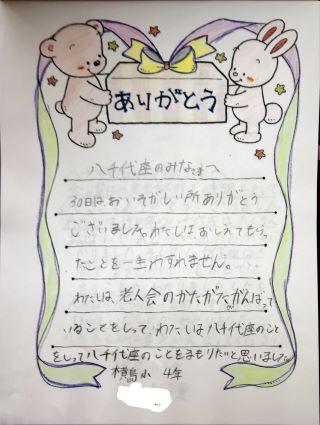 ありがとう
八千代座のみなさまへ
30日はおいそがしい所ありがとう
ございました。わたしは、おしえてもらっ
たことを一生わすれません。
わたしは、老人会のかたがたががんばって
いることをしって、わたしは八千代座のこと
をしって八千代座のことをまもりたいと思いました。
横島小 4年